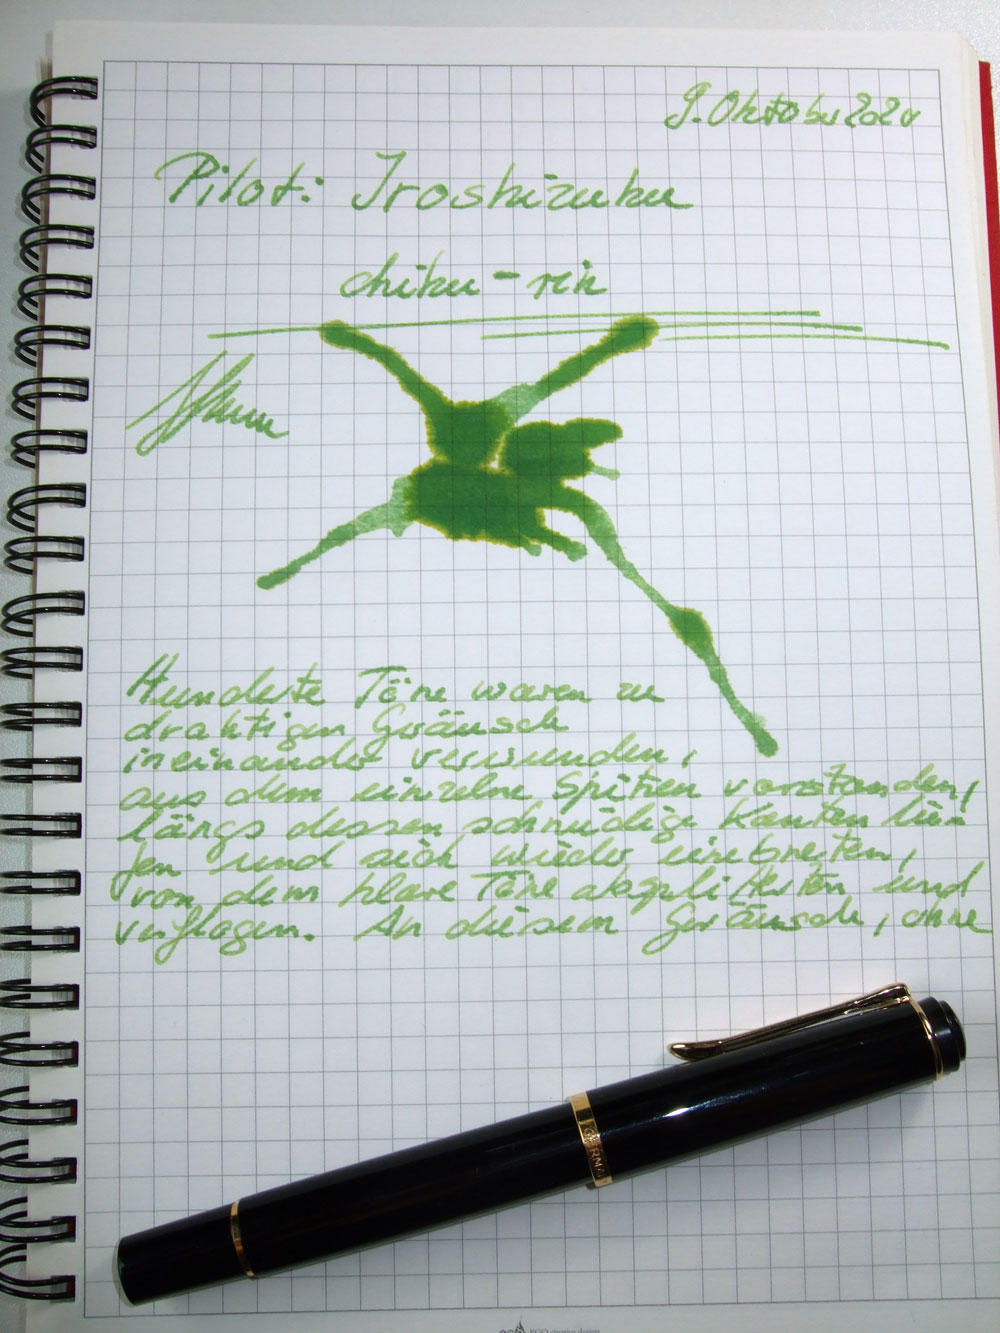 9. Oktober
Pilot: Iroshizuku
chiku-rin
Hunderte Töne waren zu
drahtigen Geräusch
ineinander verwunden,
aus dem einzelne Spitzen vorstanden,
längs dessen schneidige Kanten lie-
fen und sich wieder einebneten,
von dem klare Töne absplitterten und
verflogen. An diesem Geräusch, ohne
GERMA